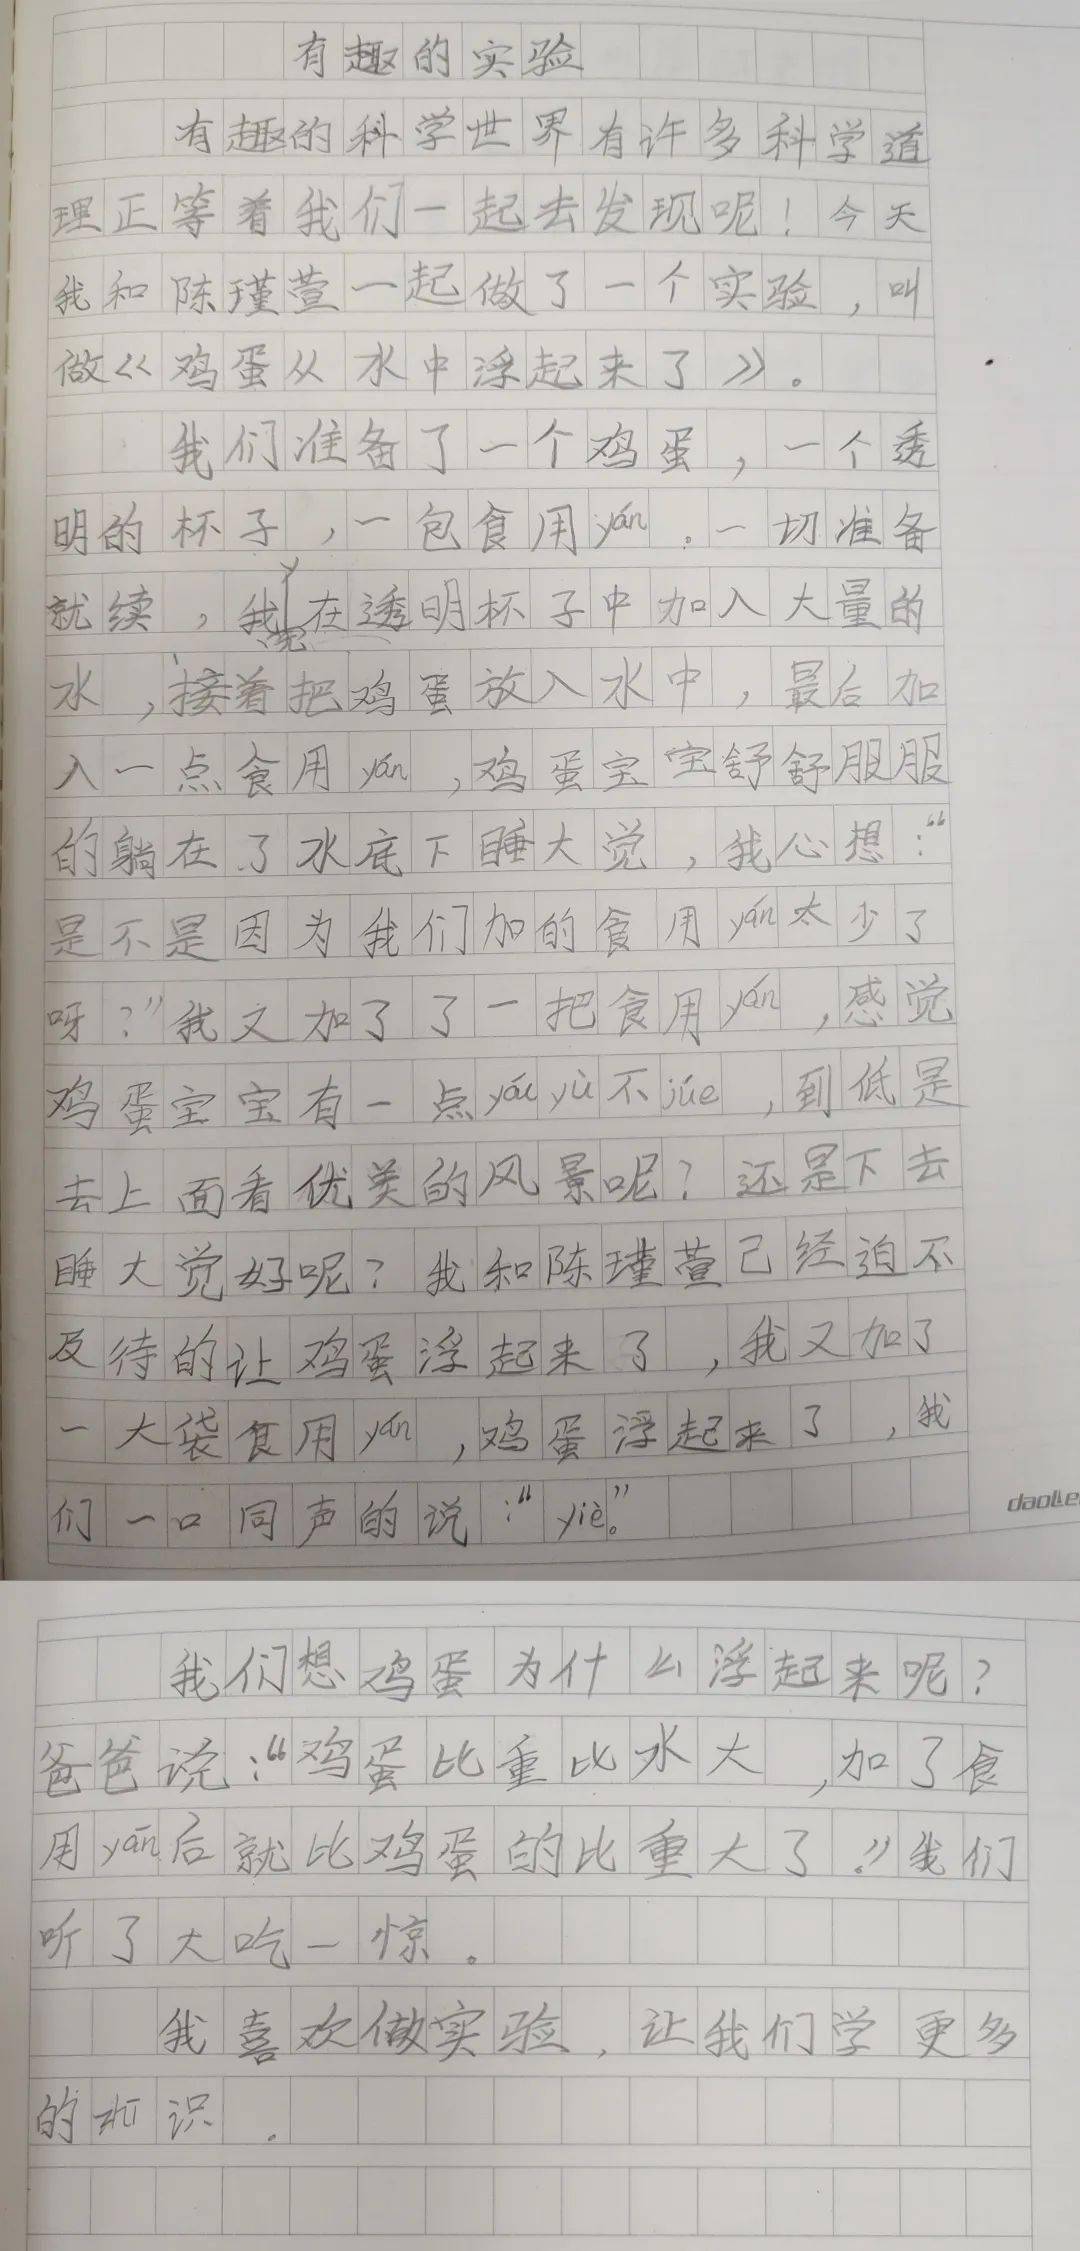 有趣的实验
有趣的科学世界有许多科学道
理正等着我们一起去发现呢！今天
我和陈瑾萱一起做了一个实验，叫
做《鸡蛋从水中浮起来了》。
我们准备了一个鸡蛋，一个透
明的杯子，一包食用yán。一切准备
就续，我先在透明杯子中加入大量的
水，接着把鸡蛋放入水中，最后加
入一点食用yán，鸡蛋宝宝舒舒服服
的躺在了水底下睡大觉，我心想：“
是不是因为我们加的食用yán太少了
呀？”我又加了了一把食用yán，感觉
鸡蛋宝宝有一点yóu yù不júe，到低是
去上面看优美的风景呢？还是下去
睡大觉好呢？我和陈瑾萱已经迫不
及待的让鸡蛋浮起来了，我又加了
一大袋食用yán，鸡蛋浮起来了，我
们一口同声的说：“yiè。”
daolle
我们想鸡蛋为什么浮起来呢？
爸爸说：“鸡蛋比重比水大，加了食
用yán后就比鸡蛋的比重大了。”我们
听了大吃一惊。
我喜欢做实验，让我们学更多
的识。